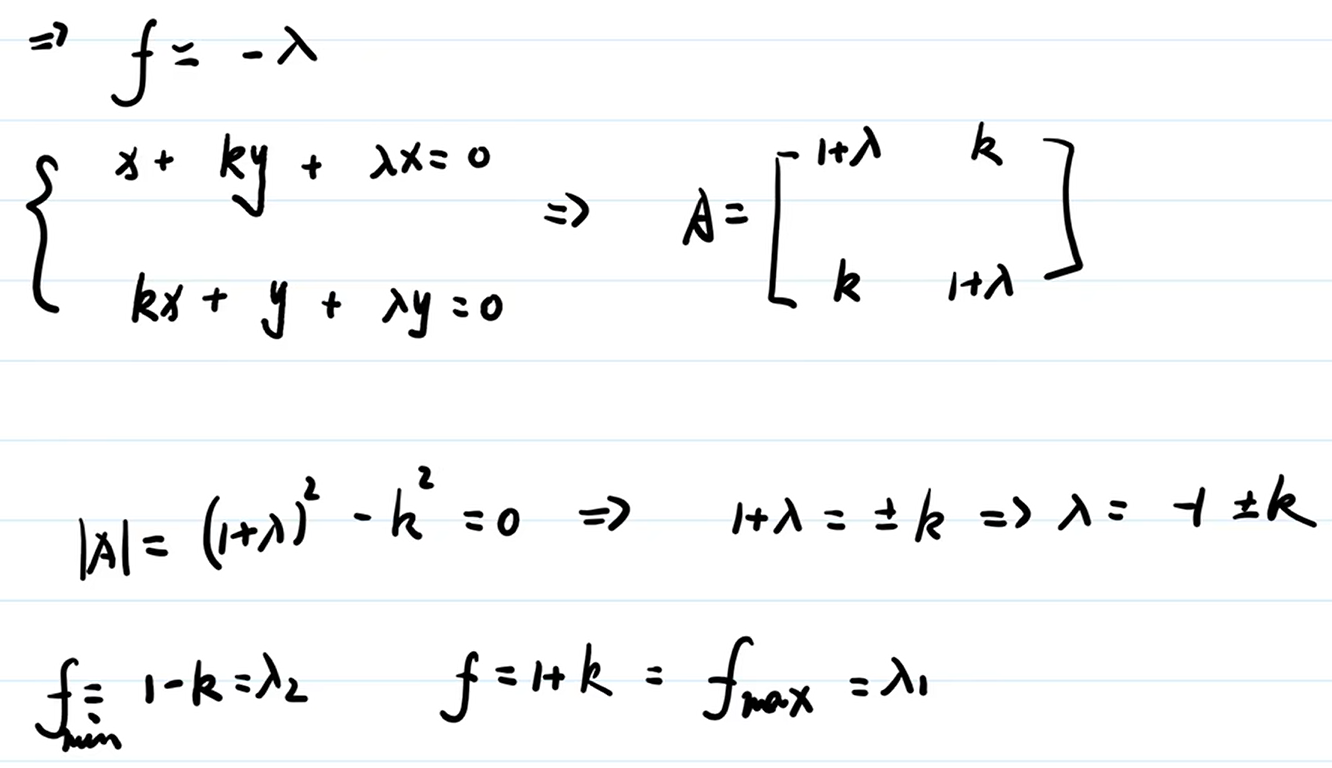 ⇒ f = -λ
{ x + ky + λx = 0 ⇒ A = [ 1+λ k
kx + y + λy = 0 k 1+λ ]
|A| = (1+λ)² - k² = 0 ⇒ 1+λ = ±k ⇒ λ = -1 ±k
f_min = 1-k = λ₂ f = 1+k = f_max = λ₁